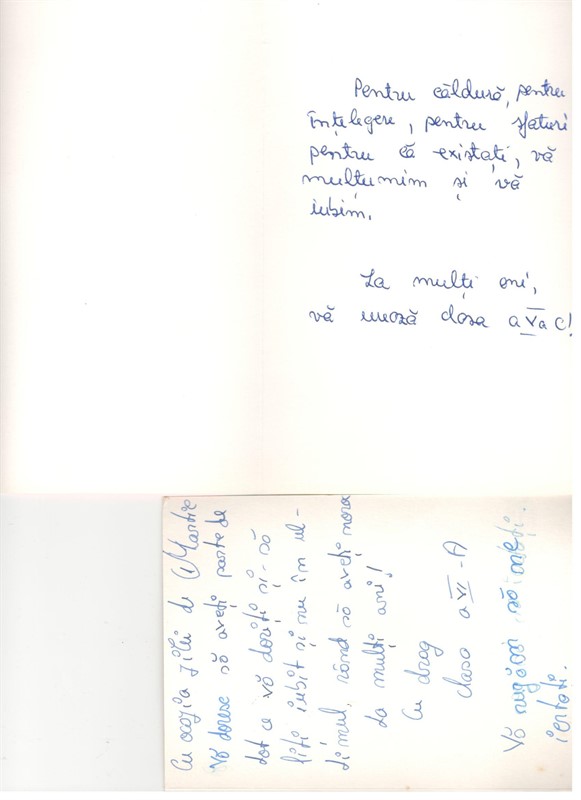 Pentru căldură, pentru
înțelegere, pentru sfaturi
pentru că existați, vă
mulțumim și vă
iubim.
La mulți ani,
vă urează clasa a V a C!
Cu ocazia zilei de 8 Martie
Vă doresc să aveți parte de
tot ce vă doriți și să
fiți iubit și nu în ul-
timul, rând să aveți noroc
La mulți ani!
Cu drag
Clasa a VI-A
Vă rugăm să ne
iertați.